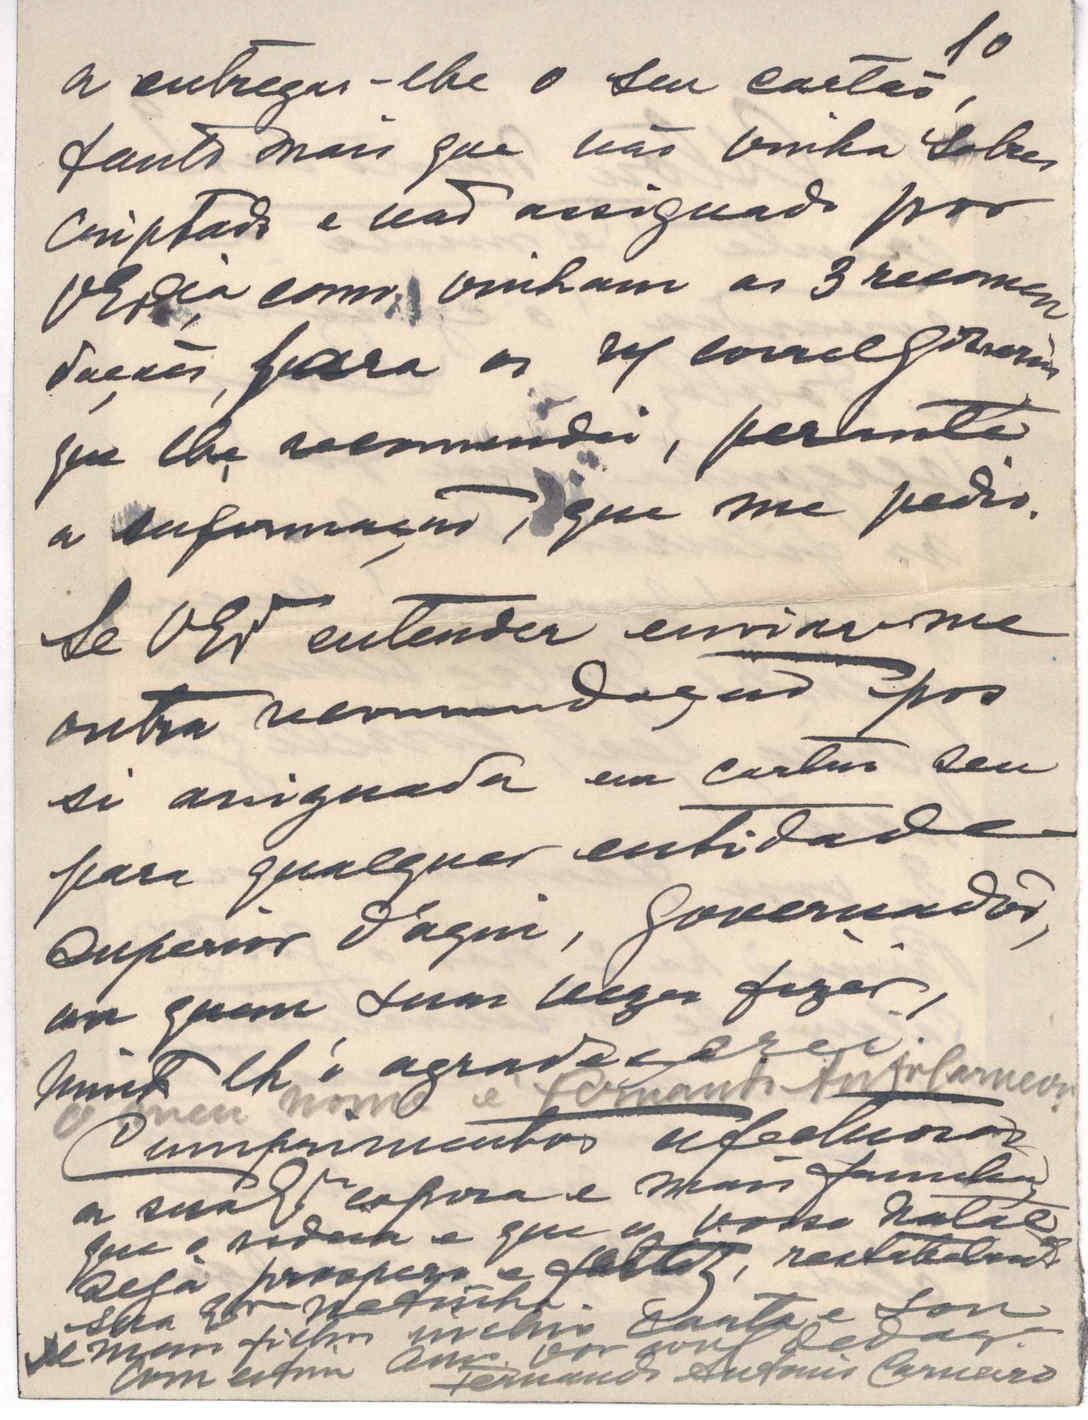 10
a entregar-lhe o seu cartão,
tanto mais que não vinha sobres
criptado e não assignado por
VExcia, como vinham as 3 recomen
dações, para os
que lhe recomendei, permita
a informação, que me pedio.
Se VExa entender enviar-me
outra recommendação por
si assignada em cartão seu
para qualquer entidade
superior d'aqui, Governador,
ou quem suas vezes fizer,
muito lh'o agradecerei.
O meu nome é Fernando Antº Carneiro
Cumprimentos afectuosos
a sua Exma esposa e mais familia
que o rodeia e que o vosso Natal
seja prospero e feliz,
sua netinha.
meus filhos e sou
com estima Amº
Fernando Antonio Carneiro